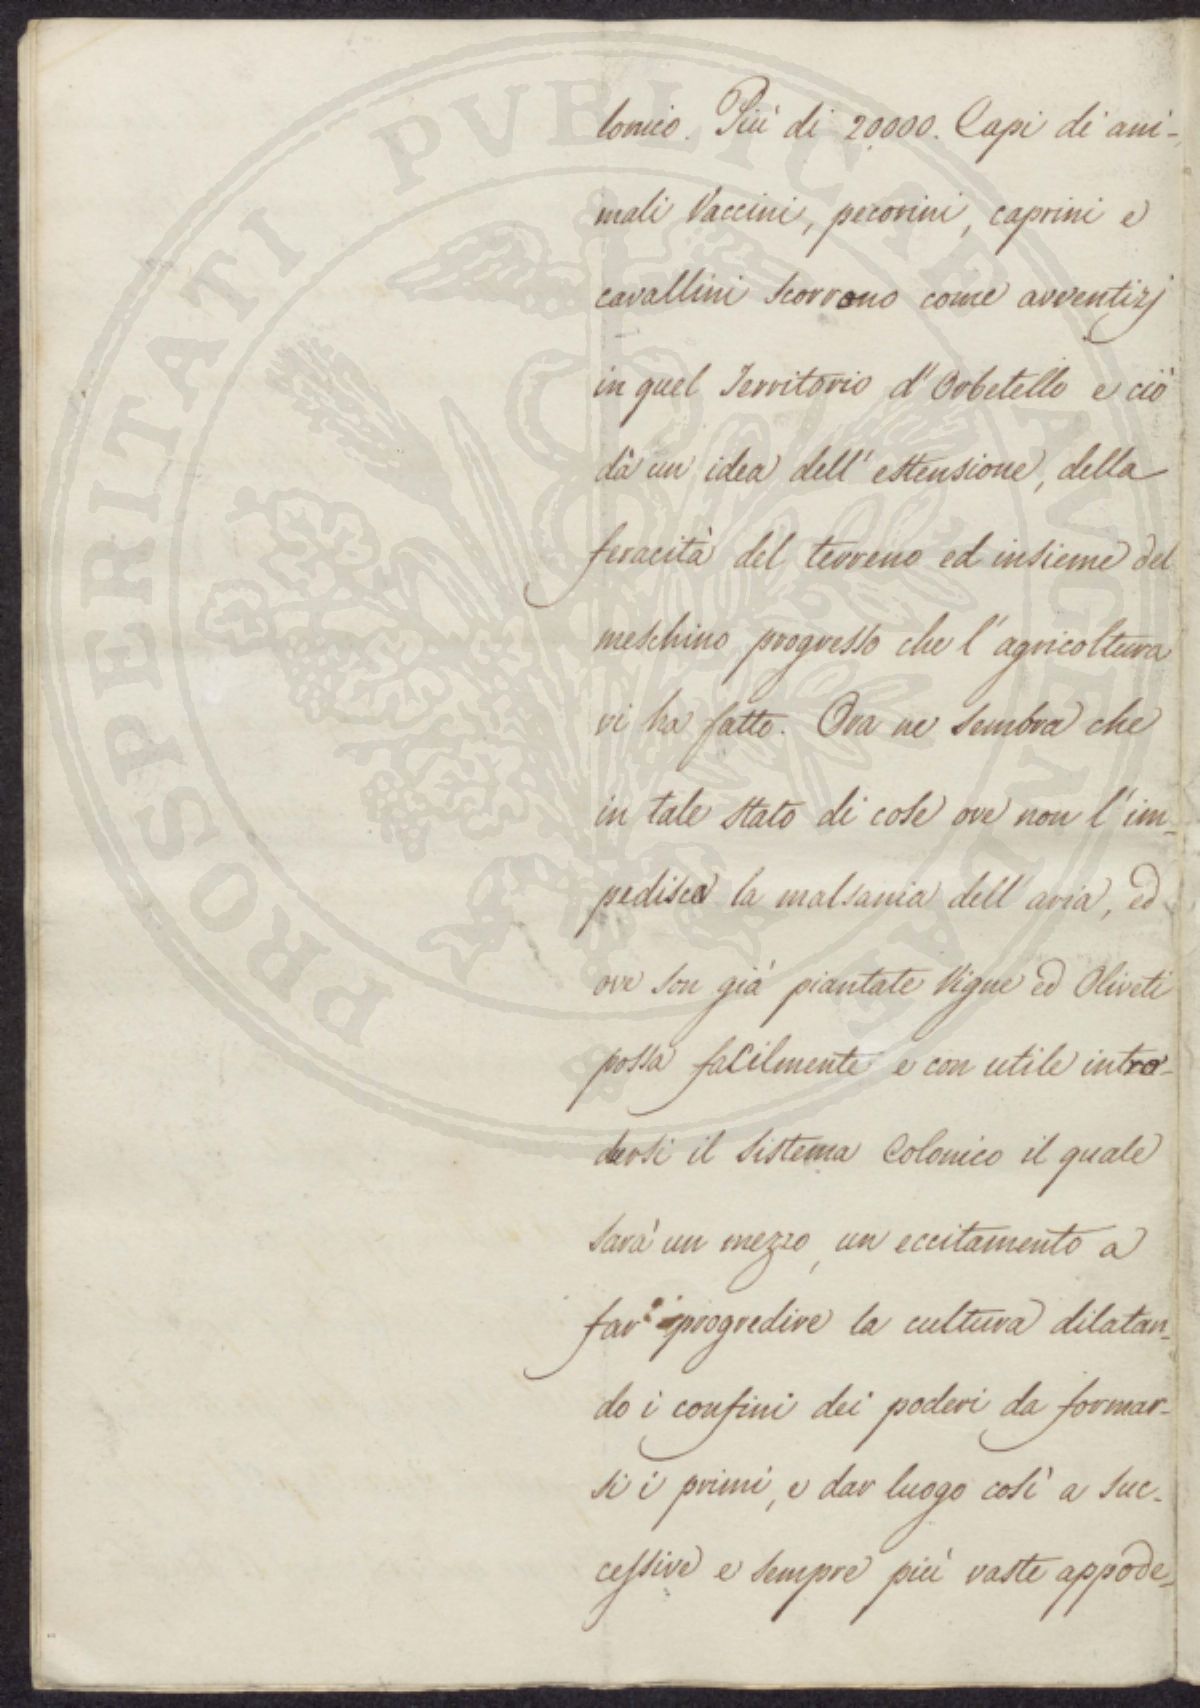 PROSPERITATI PVBLICAE AVGENDAE
lonico. Più di 20000. Capi di ani-
mali Vaccini, pecorini, caprini e
cavallini scorrono come avventizj
in quel Territorio d'Orbetello e ciò
dà un idea dell'estensione, della
feracità del terreno ed insieme del
meschino progresso che l'agricoltura
vi ha fatto. Ora ne sembra che
in tale stato di cose ove non l'im-
pedisca la malsania dell'aria, ed
ove son già piantate Vigne ed Oliveti
possa facilmente e con utile intro-
dursi il sistema Colonico il quale
sarà un mezzo, un eccitamento a
far progredire la cultura dilatan-
do i confini dei poderi da formar-
si i primi, e dar luogo così a suc-
cessive e sempre più vaste appode-